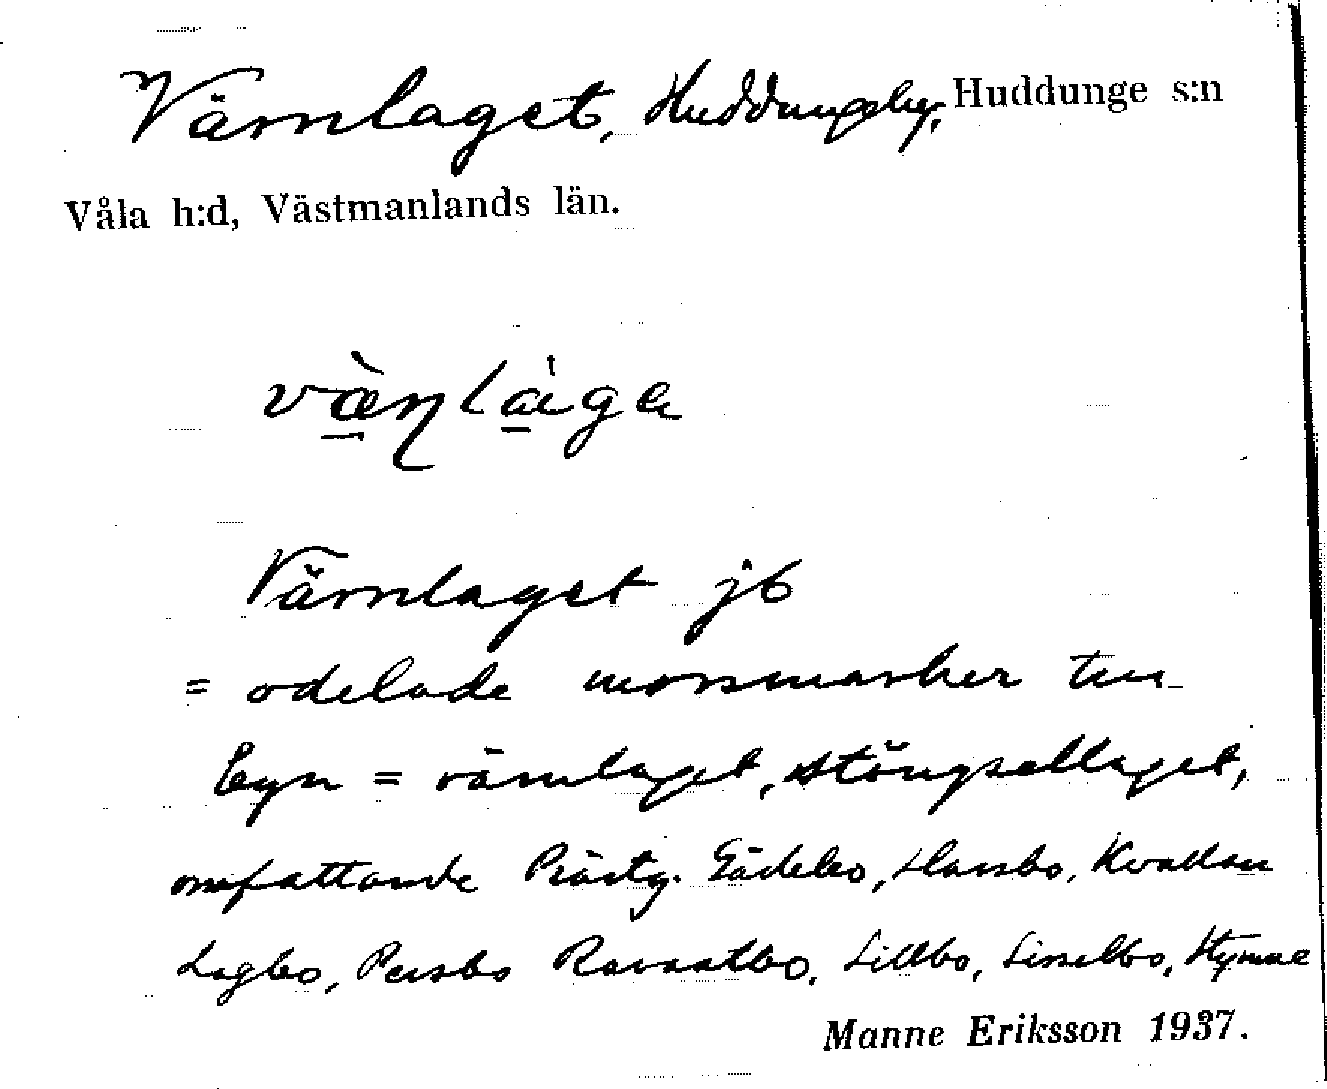 Värnlaget, Huddungeby, Huddunge s:n
Våla h:d, Västmanlands län.
vàn̠låga
Värnlaget jb
= odelade mossmarker
Egn = värnlaget, stängsellaget,
omfattande Prästg. Gädebo, Hansbo,
Lagbo, Persbo Lillbo, Sisselbo,
Manne Eriksson 1937.